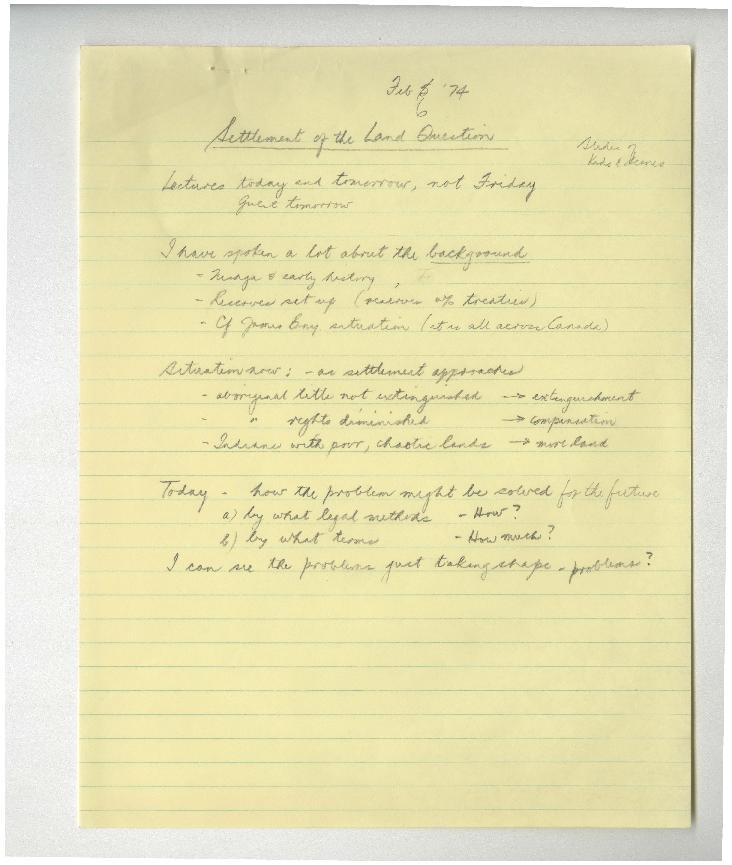 Feb 5 '74
6
Settlement of the Land Question
Slides of
Kids & Scenes
Lectures today and tomorrow, not Friday
Guest tomorrow
I have spoken a lot about the background
- Nisga & early history,
- Reserves set up (reserves w/o treaties)
- Cf James Bay situation (it is all across Canada)
Situation now: - as settlement approaches
- aboriginal title not extinguished → extinguishment
- " rights diminished → compensation
- Indians with poor, chaotic lands → more land
Today - how the problem might be solved for the future
a) by what legal methods - How?
b) by what terms - How much?
I can see the problems just taking shape - problems?